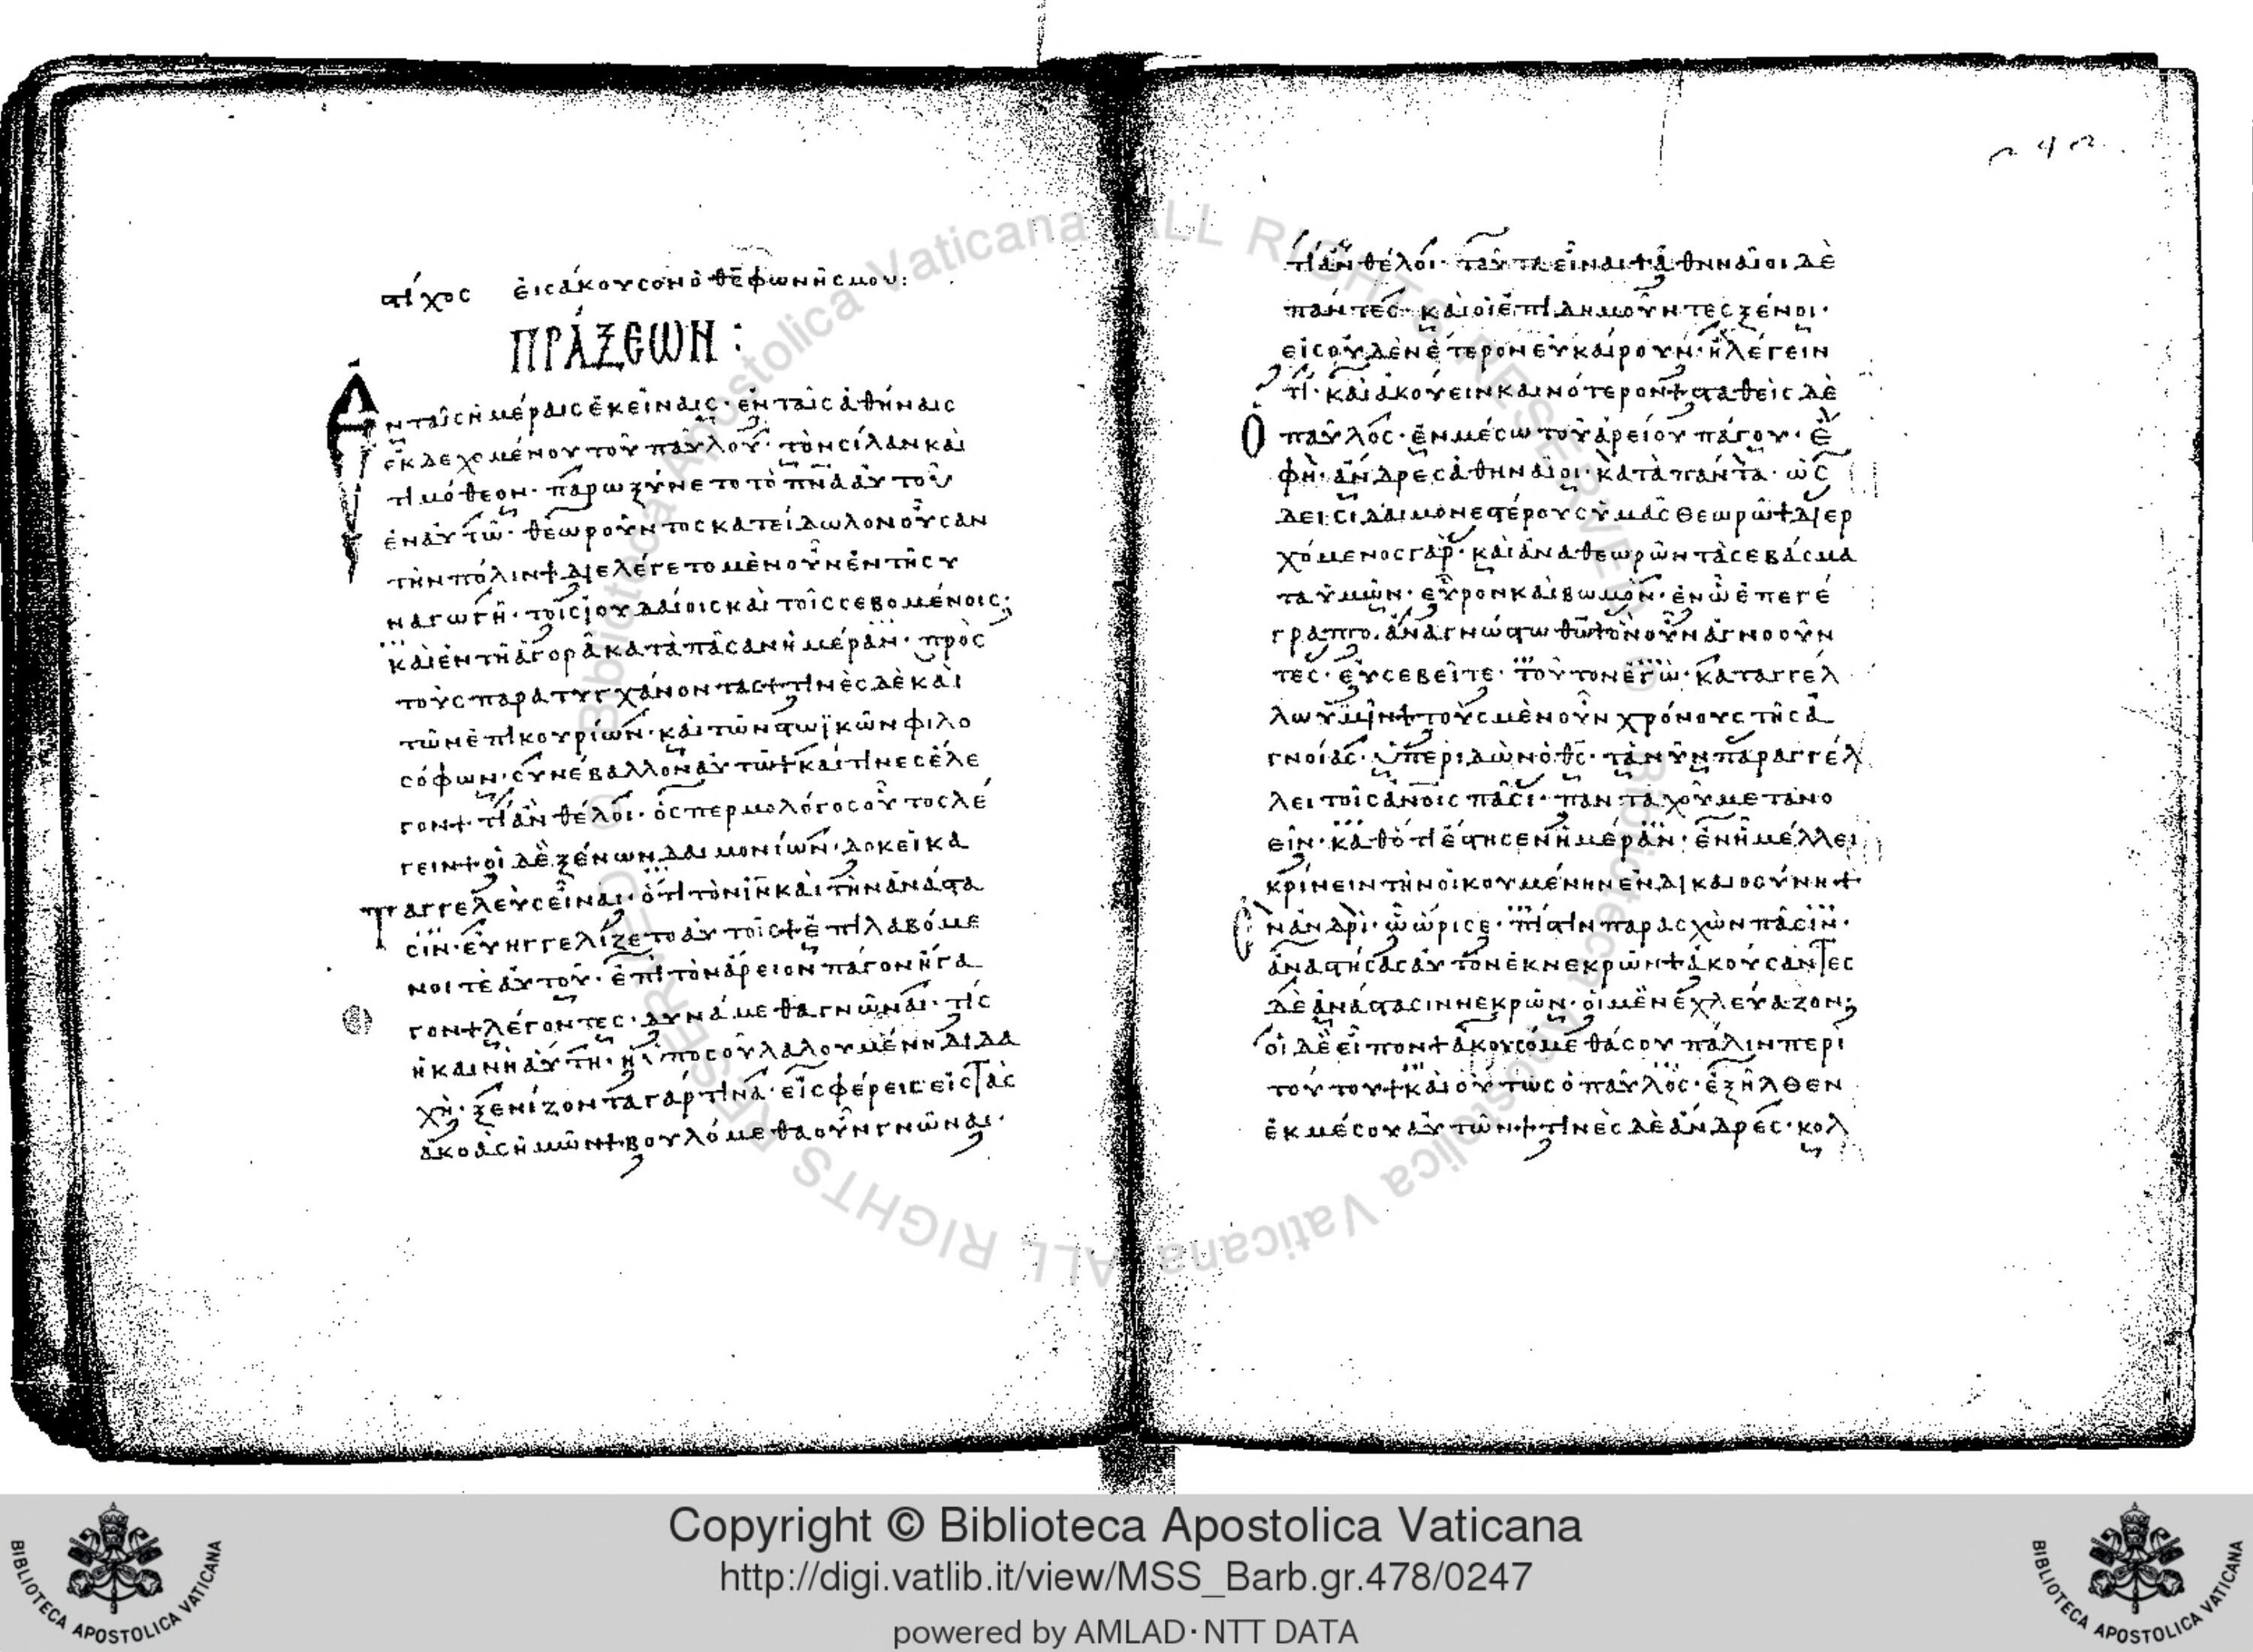 στίχος εἰσάκουσον ὁ θς φωνῆς μου:
ΠΡΆΞΕΩΝ:
Εν ταῖς ἡμέραις ἐκείναις· ἐν ταῖς ἀθήναις
ἐκδεχομένου τοῦ παύλου· τὸν σίλαν καὶ
τιμόθεον· παρωξύνετο τὸ πνα αὐτοῦ
ἐν αὐτῷ· θεωροῦντος κατείδωλον οὖσαν
τὴν πόλιν + διελέγετο μὲν οὖν ἐν τῆ συ
ναγωγῆ· τοῖς ἰουδαίοις καὶ τοῖς σεβομένοις·
καὶ ἐν τῆ ἀγορᾶ κατὰ πᾶσαν ἡμέραν· πρὸς
τοὺς παρατυγχάνοντας + τινὲς δὲ καὶ
τῶν ἐπικουρίων· καὶ τῶν στωϊκῶν φιλο
σόφων· συνέβαλλον αὐτῶ + καί τινες ἔλε
γον + τί ἂν θέλοι· ὁ σπερμολόγος οὗτος λέ
γειν + οἱ δὲ ξένων δαιμονίων· δοκεῖ κα
ταγγελεὺς εἶναι· ὅτι τὸν ιν καὶ τὴν ἀνάστα
σιν· εὐηγγελίζετο αὐτοῖς + ἐπιλαβόμε
νοί τε αὐτοῦ· ἐπὶ τὸν ἄρειον πάγον ἤγα
γον + λέγοντες· δυνάμεθα γνῶναι· τίς
ἡ καινὴ αὕτη· ἡ ὑπὸ σοῦ λαλουμένη διδα
χὴ· ξενίζοντα γάρ τινα· εἰσφέρεις εἰς τὰς
ἀκοὰς ἡμῶν + βουλόμεθα οὖν γνῶναι·
τί ἂν θέλοι· ταῦτα εἶναι + ἀθηναῖοι δὲ
πάντες· καὶ οἱ ἐπιδημοῦντες ξένοι·
εἰς οὐδὲν ἕτερον εὐκαίρουν· ἢ λέγειν
τί· καὶ ἀκούειν καινότερον + σταθεὶς δὲ
ὁ παῦλος· ἐν μέσω τοῦ ἀρείου πάγου· ἔ
φη· ἄνδρες ἀθηναῖοι· κατὰ πάντα· ὡς
δεισιδαιμονεστέρους ὑμᾶς θεωρῶ + διερ
χόμενος γὰρ· καὶ ἀναθεωρῶν τὰ σεβάσμα
τα ὑμῶν· εὗρον καὶ βωμὸν· ἐν ὧ ἐπεγέ
γραπτο· ἀγνώστω θω + ὃν οὖν ἀγνοοῦν
τες· εὐσεβεῖτε· τοῦτον ἐγὼ· καταγγέλ
λω ὑμῖν + τοὺς μὲν οὖν χρόνους τῆς ἀ
γνοίας· ὑπεριδὼν ὁ θς· τὰ νῦν παραγγέλ
λει τοῖς ανοις πᾶσι· πανταχοῦ μετανο
εῖν· καθότι ἔστησεν ἡμέραν· ἐν ἧ μέλλει
κρίνειν τὴν οἰκουμένην ἐν δικαιοσύνη +
ἐν ἀνδρὶ· ὧ ὥρισε· πίστιν παρασχὼν πᾶσιν·
ἀναστήσας αὐτὸν ἐκ νεκρῶν + ἀκούσαντες
δὲ ἀνάστασιν νεκρῶν· οἱ μὲν ἐχλεύαζον·
οἱ δὲ εἶπον + ἀκουσόμεθά σου πάλιν περὶ
τούτου + καὶ οὕτως ὁ παῦλος· ἐξῆλθεν
ἐκ μέσου αὐτῶν + τινὲς δὲ ἄνδρες· κολ
Copyright © Biblioteca Apostolica Vaticana
http://digi.vatlib.it/view/MSS_Barb.gr.478/0247
powered by AMLAD·NTT DATA
BIBLIOTECA APOSTOLICA VATICANA
BIBLIOTECA APOSTOLICA VATICANA